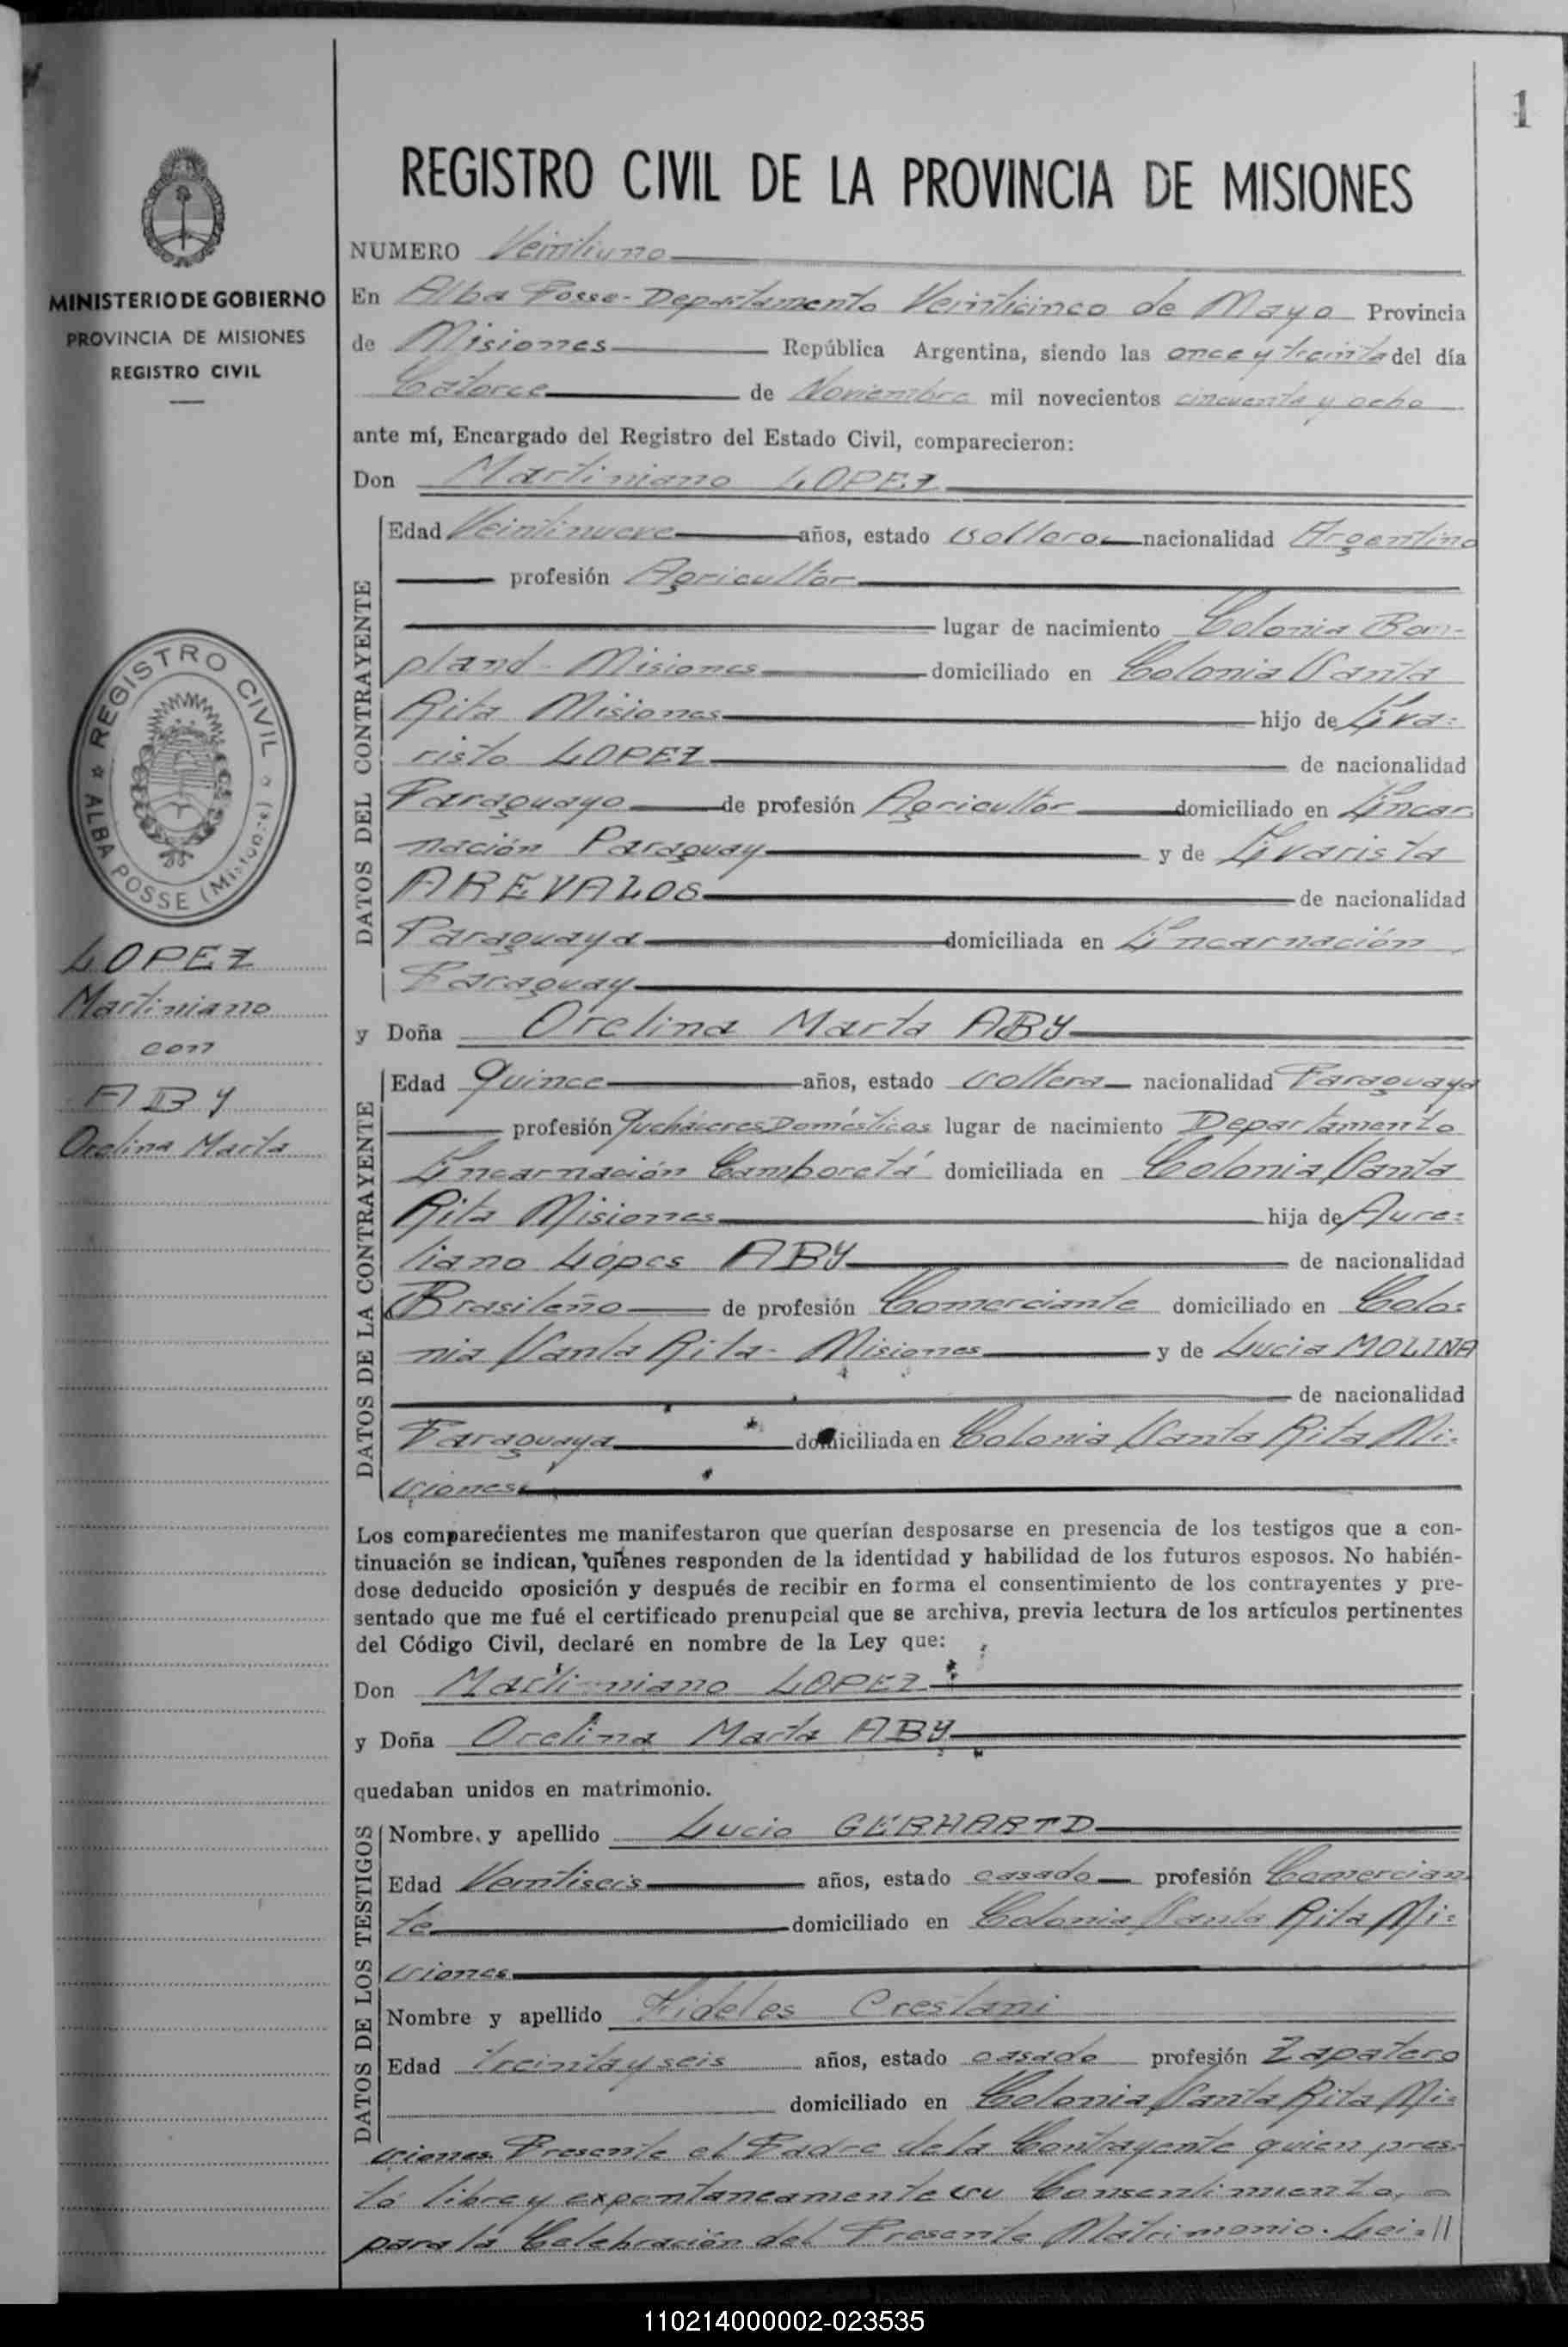 1
REGISTRO CIVIL DE LA PROVINCIA DE MISIONES
MINISTERIO DE GOBIERNO
PROVINCIA DE MISIONES
REGISTRO CIVIL
REGISTRO CIVIL
ALBA POSSE (Misiones)
LOPEZ
Martiniano
con
ABY
Orelina Marta
NUMERO Veintiuno
En Alba Posse - Departamento Veinticinco de Mayo Provincia
de Misiones República Argentina, siendo las once y treinta del día
Catorce de Noviembre mil novecientos cincuenta y ocho
ante mí, Encargado del Registro del Estado Civil, comparecieron:
Don Martiniano LOPEZ
DATOS DEL CONTRAYENTE
Edad Veintinueve años, estado soltero nacionalidad Argentino
profesión Agricultor
lugar de nacimiento Colonia Bon-
pland - Misiones domiciliado en Colonia Santa
Rita Misiones hijo de Eva=
risto LOPEZ de nacionalidad
Paraguayo de profesión Agricultor domiciliado en Encar
nación Paraguay y de Evarista
AREVALOS de nacionalidad
Paraguaya domiciliada en Encarnación
Paraguay
y Doña Orelina Marta ABY
DATOS DE LA CONTRAYENTE
Edad Quince años, estado soltera nacionalidad Paraguaya
profesión Quehaceres Domésticos lugar de nacimiento Departamento
Encarnación Camboretá domiciliada en Colonia Santa
Rita Misiones hija de Aure=
liano Lópes ABY de nacionalidad
Brasileño de profesión Comerciante domiciliado en Colo=
nia Santa Rita - Misiones y de Lucia MOLINA
de nacionalidad
Paraguaya domiciliada en Colonia Santa Rita Mi=
siones
Los comparecientes me manifestaron que querían desposarse en presencia de los testigos que a con-
tinuación se indican, quienes responden de la identidad y habilidad de los futuros esposos. No habién-
dose deducido oposición y después de recibir en forma el consentimiento de los contrayentes y pre-
sentado que me fué el certificado prenupcial que se archiva, previa lectura de los artículos pertinentes
del Código Civil, declaré en nombre de la Ley que:
Don Martiniano LOPEZ
y Doña Orelina Marta ABY
quedaban unidos en matrimonio.
DATOS DE LOS TESTIGOS
Nombre y apellido Lucio GERHARTD
Edad Veintiseis años, estado casado profesión Comercian
te domiciliado en Colonia Santa Rita Mi=
siones
Nombre y apellido Fideles Crestani
Edad treinta y seis años, estado casado profesión Zapatero
domiciliado en Colonia Santa Rita Mi=
siones Presente el Padre de la Contrayente quien pres-
tó libre y expontaneamente su Consentimiento
para la Celebración del Presente Matrimonio. Lei=//
110214000002-023535